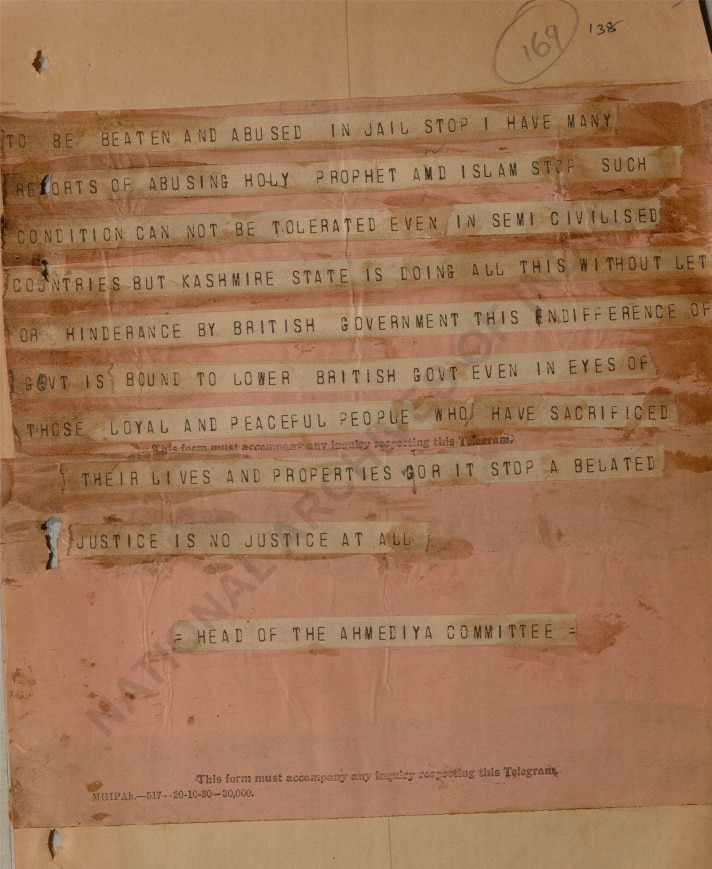 169
138
TO BE BEATEN AND ABUSED IN JAIL STOP I HAVE MANY
REPORTS OF ABUSING HOLY PROPHET AMD ISLAM STOP SUCH
CONDITION CAN NOT BE TOLERATED EVEN IN SEMI CIVILISED
COUNTRIES BUT KASHMIRE STATE IS DOING ALL THIS WITHOUT LET
OR HINDERANCE BY BRITISH GOVERNMENT THIS INDIFFERENCE OF
GOVT IS BOUND TO LOWER BRITISH GOVT EVEN IN EYES OF
THOSE LOYAL AND PEACEFUL PEOPLE WHO HAVE SACRIFICED
This form must accompany any inquiry respecting this Telegram.
THEIR LIVES AND PROPERTIES GOR IT STOP A BELATED
JUSTICE IS NO JUSTICE AT ALL
= HEAD OF THE AHMEDIYA COMMITTEE =
NATIONAL ARCHIVES OF
This form must accompany any inquiry respecting this Telegram.
MGIPAh.—517—20-10-30—30,000.